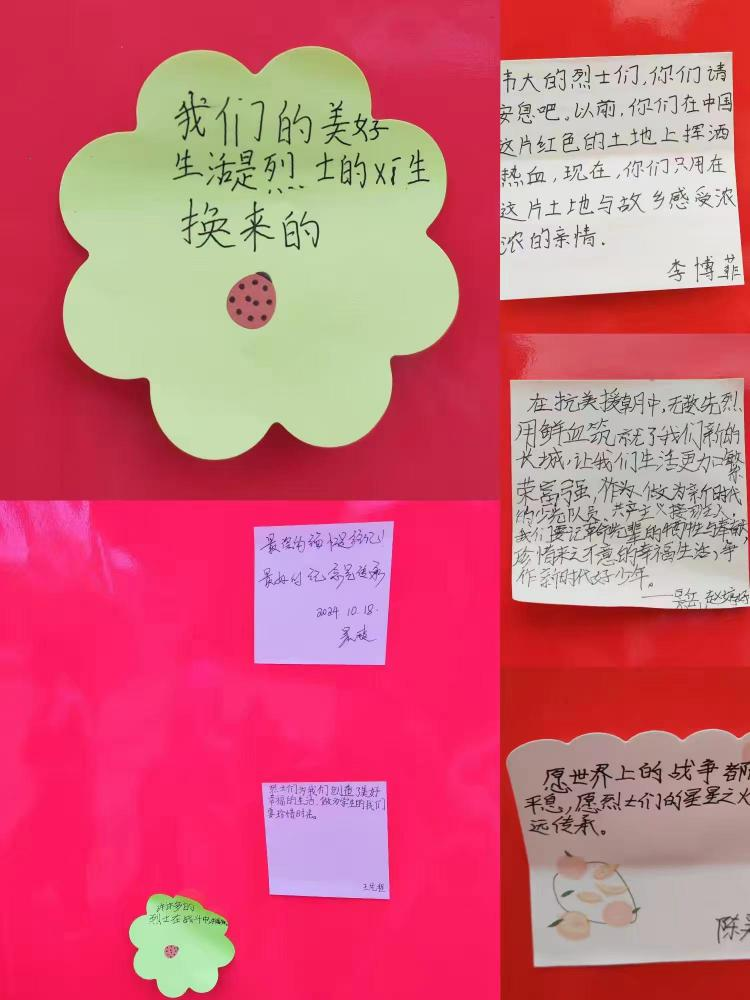 我们的美好
生活是烈士的xī生
换来的
伟大的烈士们,你们请
安息吧。以前,你们在中国
这片红色的土地上挥洒
热血,现在,你们只用在
这片土地与故乡感受浓
浓的亲情.
李博菲
在抗美援朝中,无数先烈,
用鲜血筑就了我们新的
长城,让我们生活更加繁
荣富强,作为做为新时代
的少先队员,共产主义接班人,
我们要记革命先辈的牺牲与奉献,
珍惜来之不意的幸福生活,争
作新时代好少年。
最好的缅怀是铭记!
最好的记忆是传承
2024.10.18.
烈士们为我们创造了美好
幸福的生活,做为学生的我们
要珍惜时光。
许许多多的
烈士在战斗中
愿世界上的战争都
平息,愿烈士们的星星之火
远传承。
陈